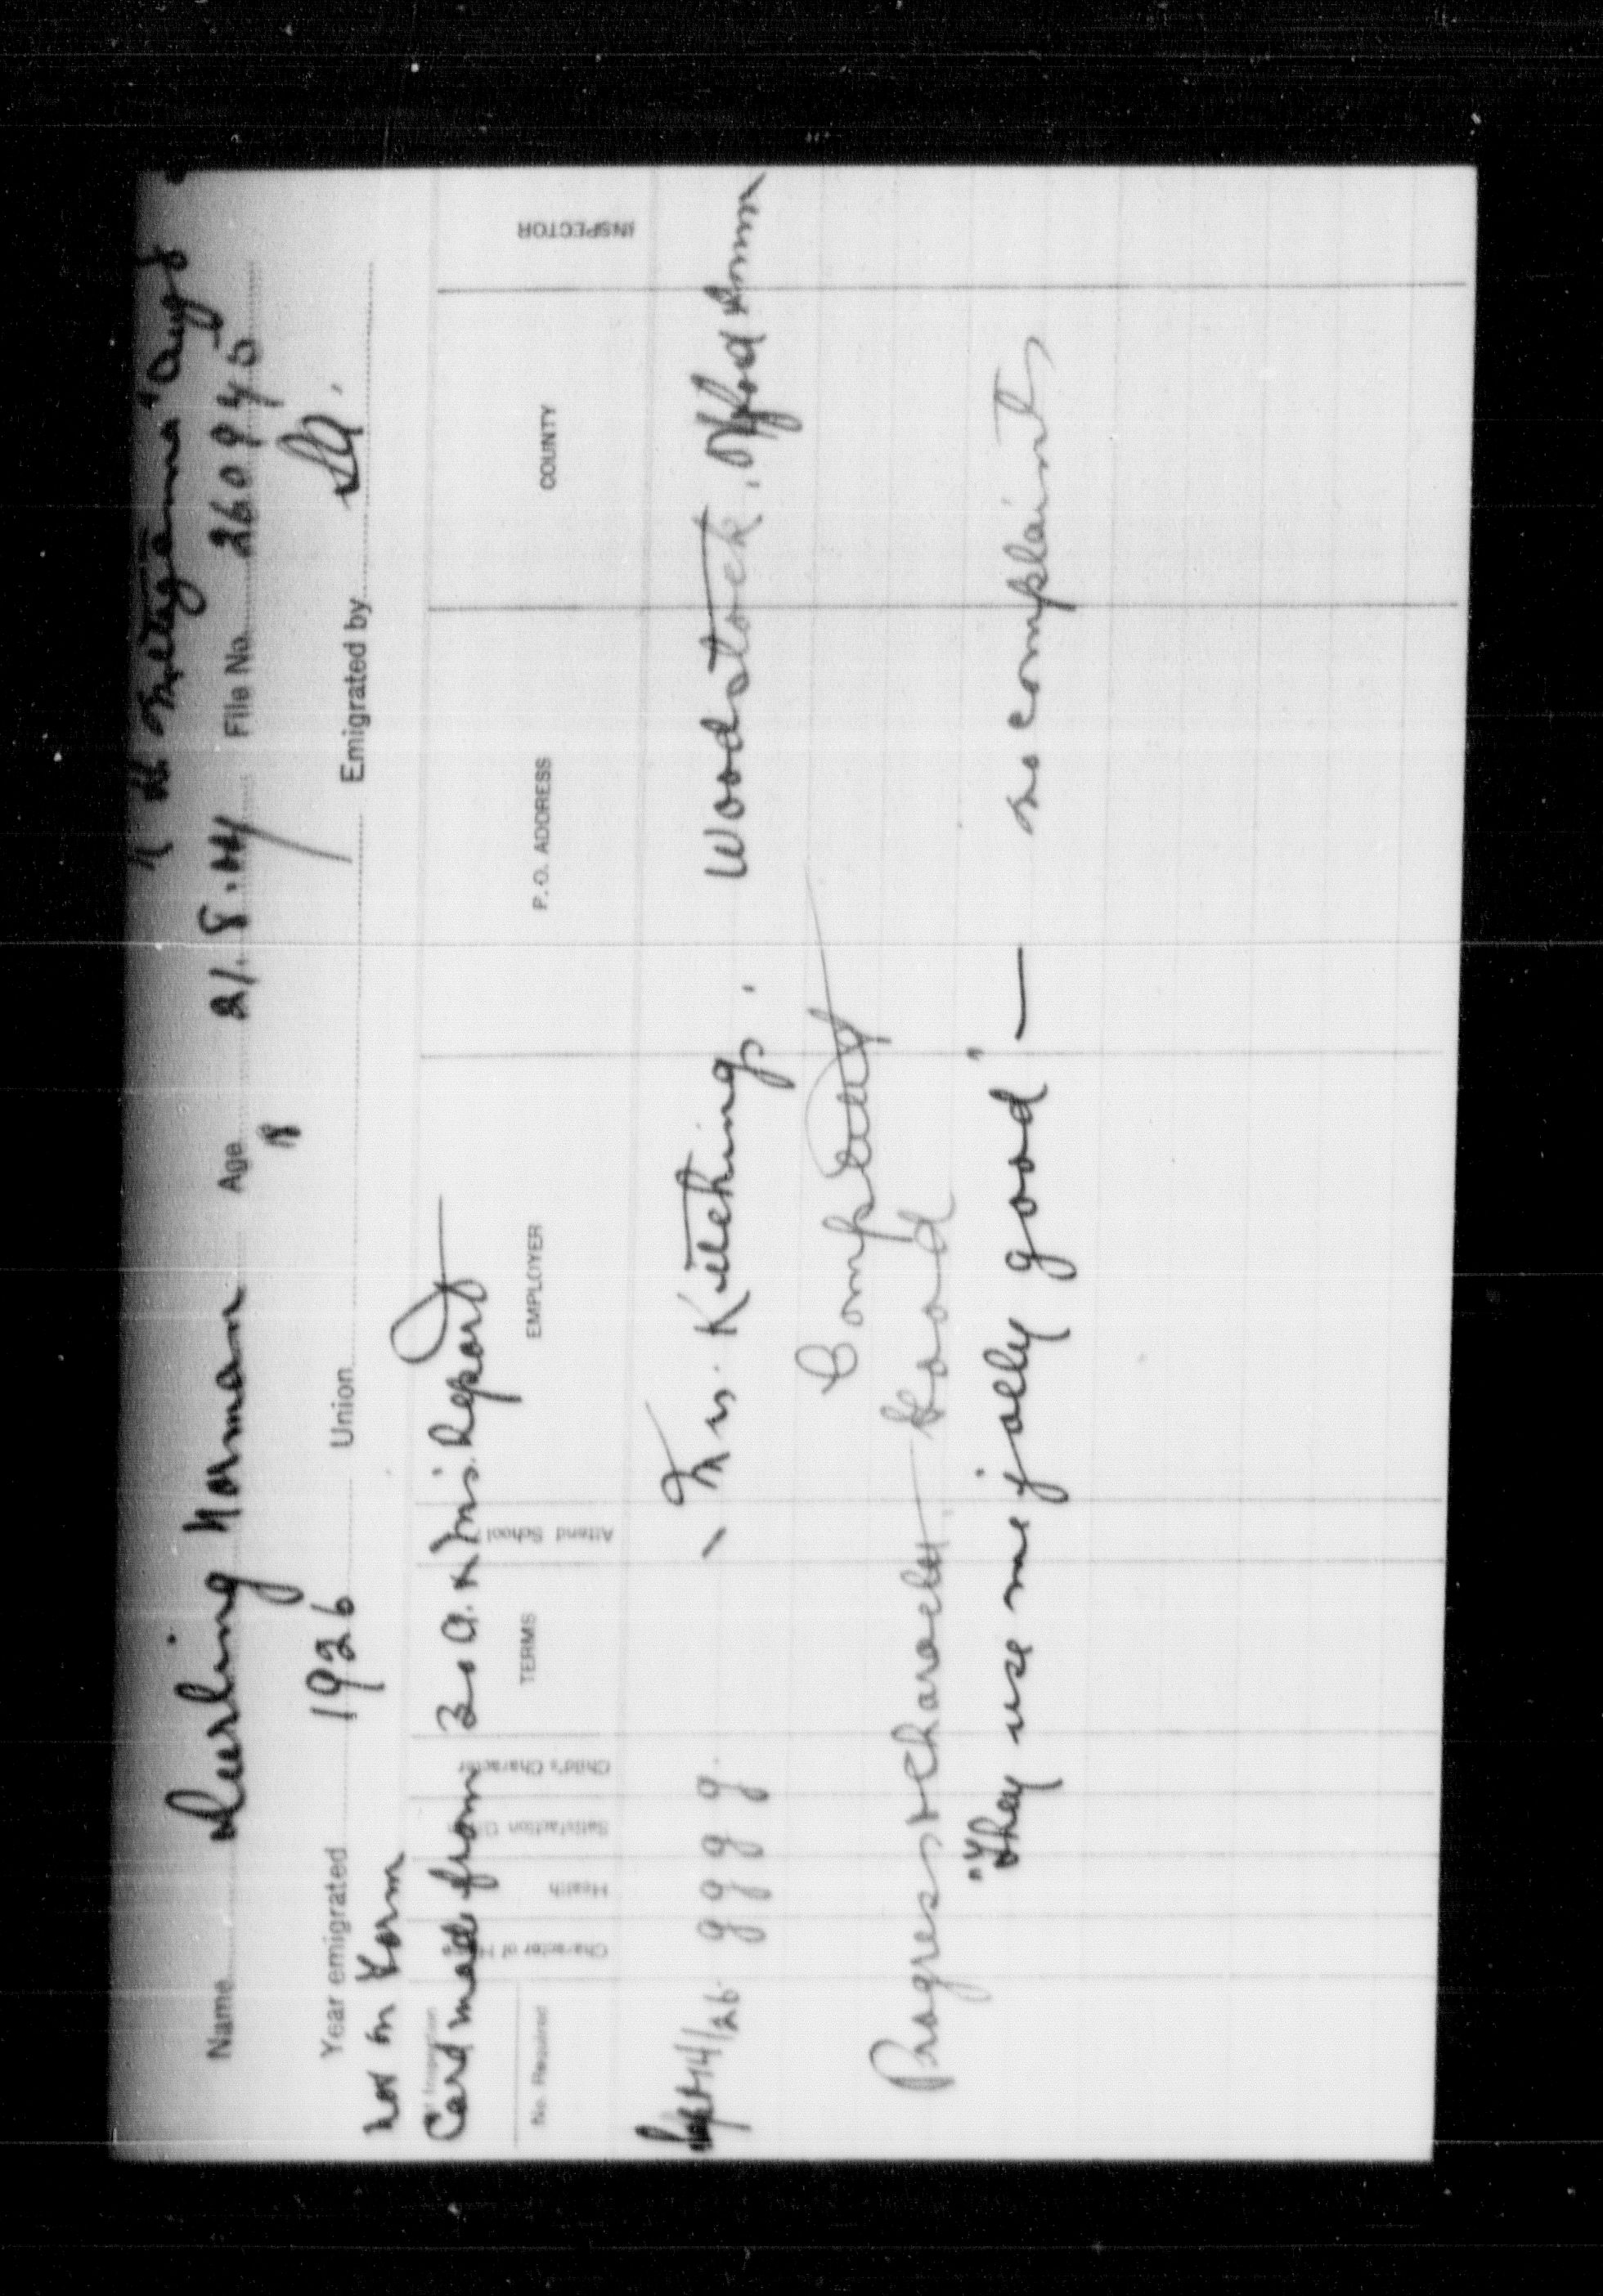 "Melita" Aug
Name Durling Norman Age 21.8.14 File No. 260940
18
Year emigrated 1926 Union Emigrated by S.A.
not on Form
Card made from B.O.A. & Mis. Report
No. Required Character of Health Satisfaction Child's Character TERMS Attend School EMPLOYER P. O. ADDRESS COUNTY INSPECTOR
Sept 14/26 g g g g Mrs. Kitching. Woodstock, Oxford
Completed
Progress & Character Good
"They use me jolly good" — no complaints